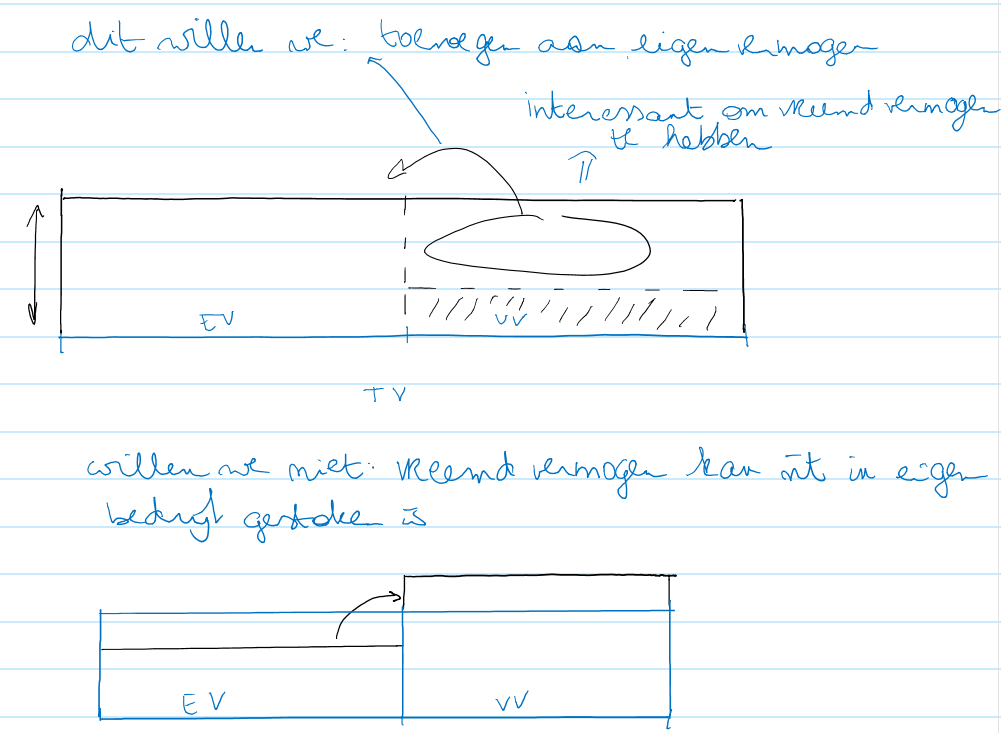 dit willen we: toevoegen aan eigen vermogen
interessant om vreemd vermogen
te hebben
EV
VV
TV
willen we niet: vreemd vermogen in eigen
bedrijf gestoken is
EV
VV